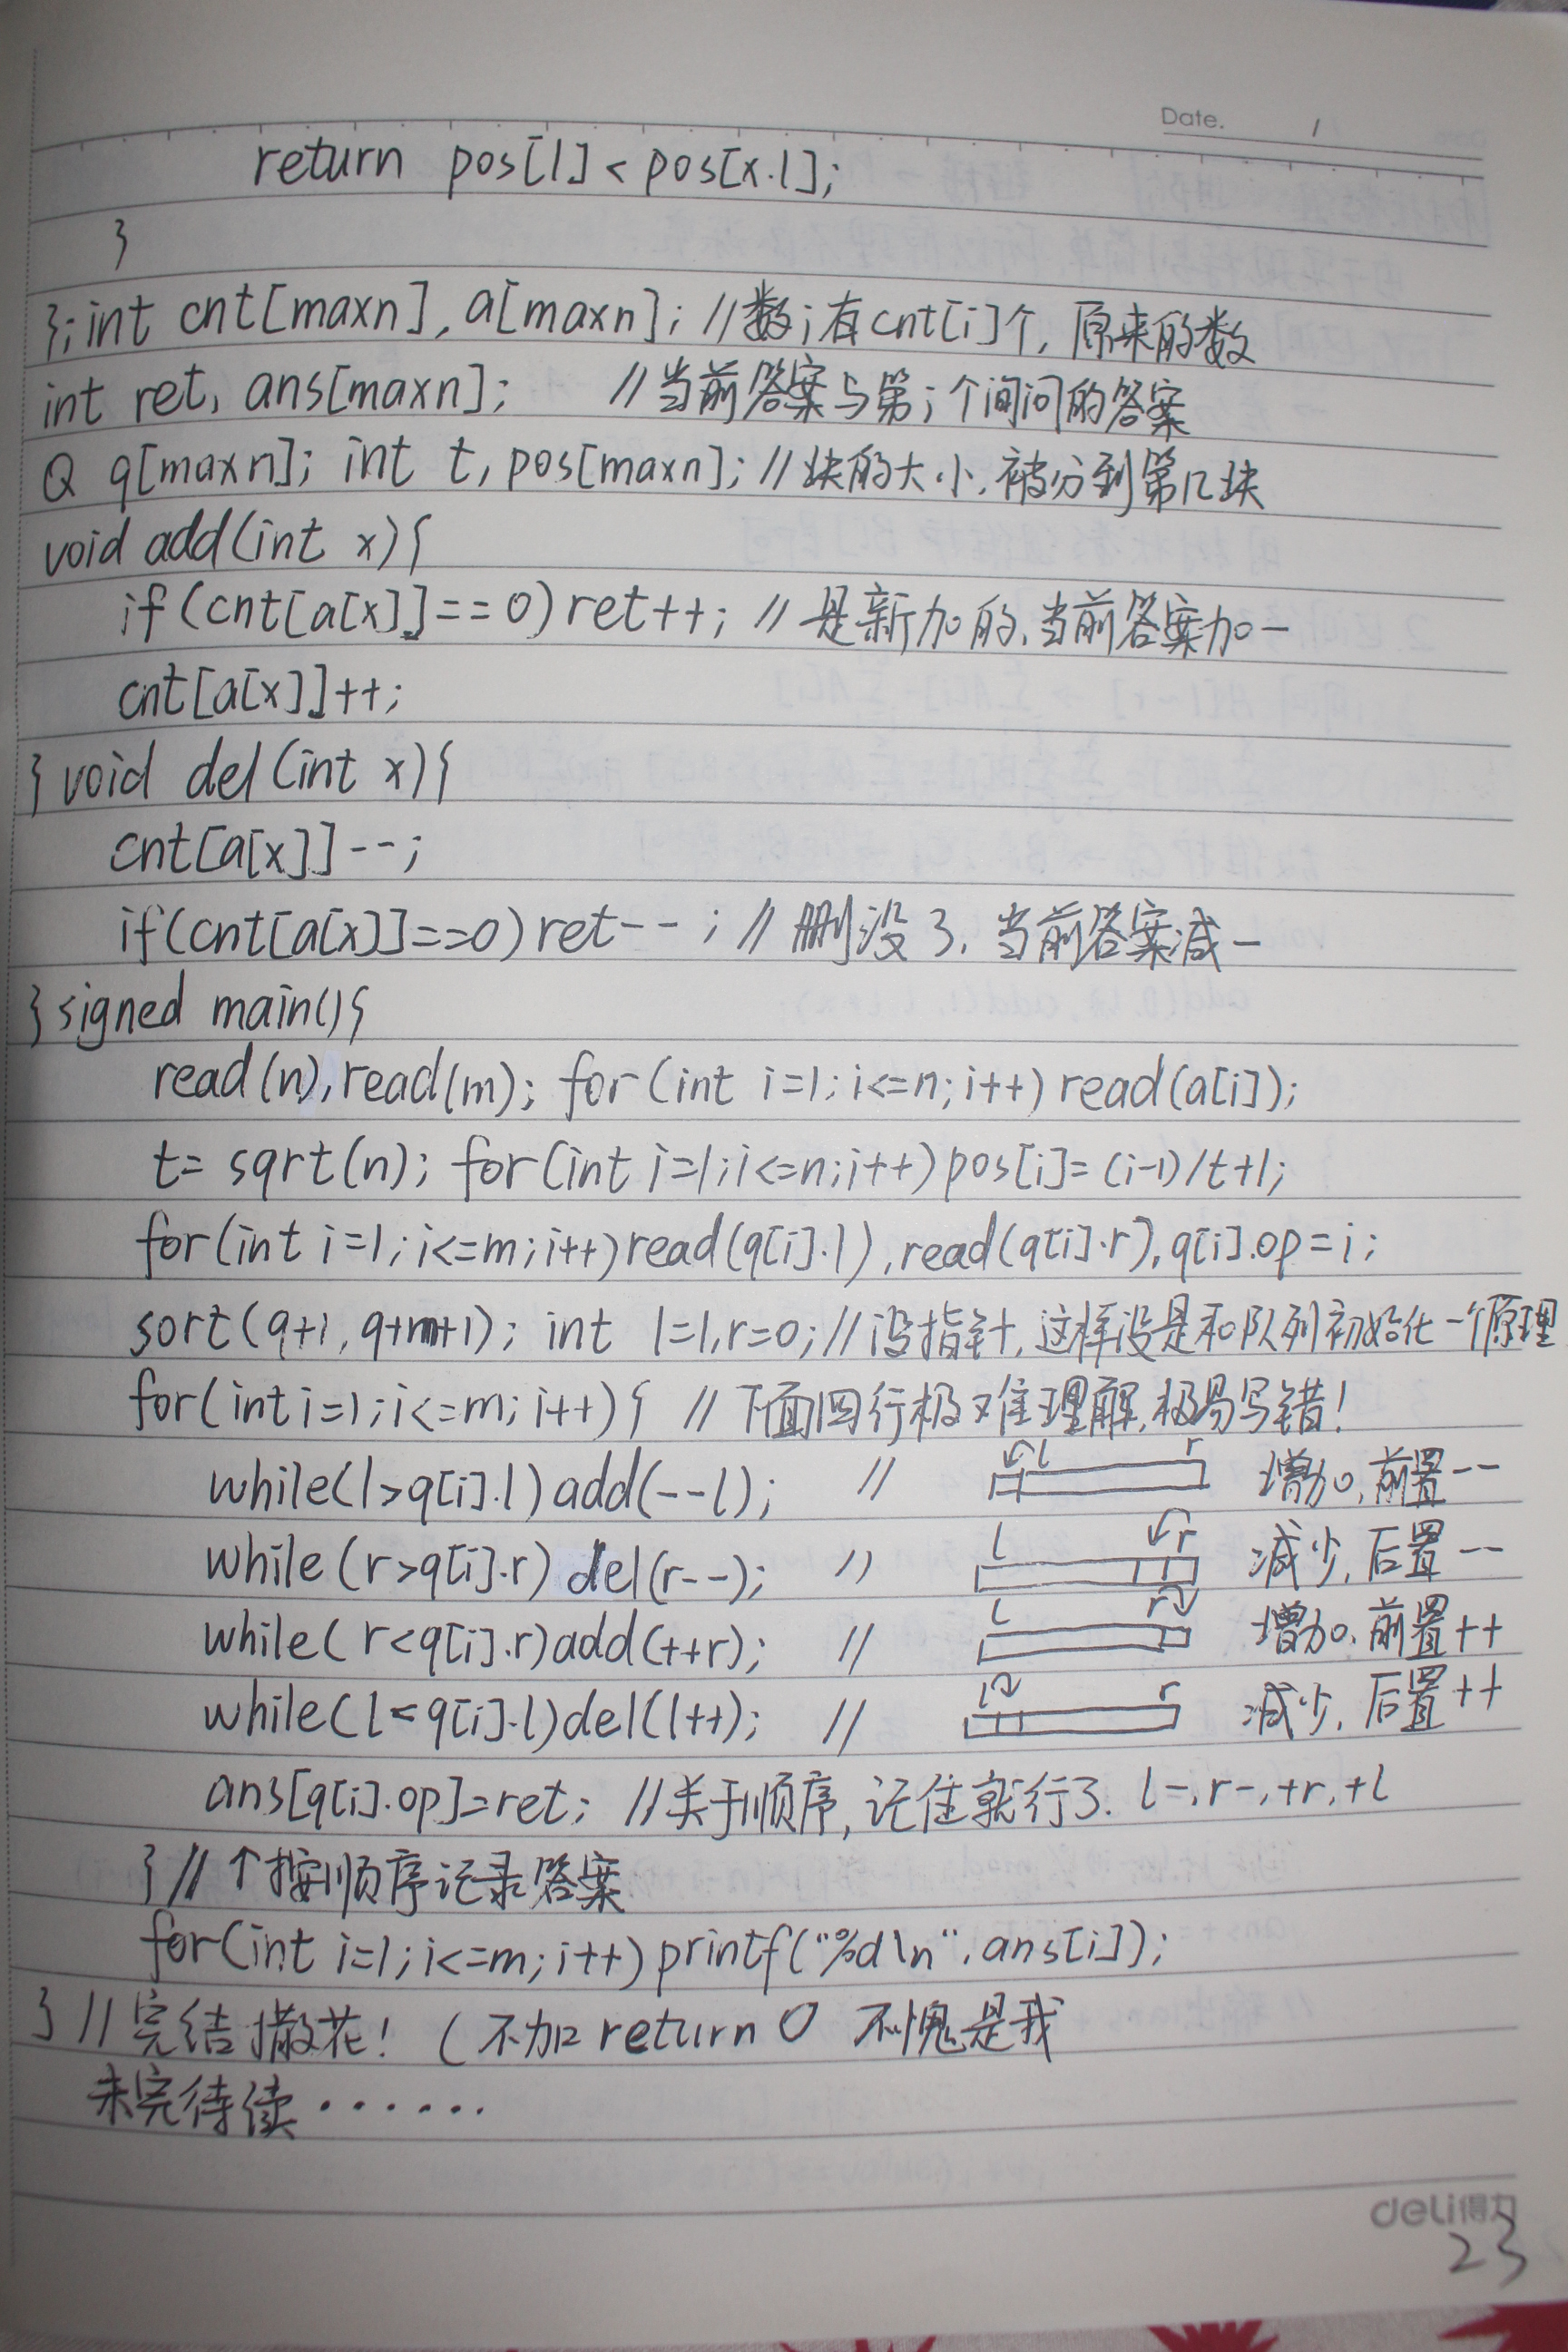 Date. /
return pos[l] < pos[x.l];
}
};int cnt[maxn], a[maxn]; //数i有cnt[i]个, 原来的数
int ret, ans[maxn]; //当前答案与第i个询问的答案
Q q[maxn]; int t, pos[maxn]; //块的大小,被分到第几块
void add(int x){
if(cnt[a[x]]==0)ret++; //是新加的,当前答案加一
cnt[a[x]]++;
} void del(int x){
cnt[a[x]]--;
if(cnt[a[x]]==0)ret--; //删没了,当前答案减一
} signed main(){
read(n),read(m); for(int i=1;i<=n;i++)read(a[i]);
t=sqrt(n); for(int i=1;i<=n;i++)pos[i]=(i-1)/t+1;
for(int i=1;i<=m;i++)read(q[i].l),read(q[i].r),q[i].op=i;
sort(q+1,q+m+1); int l=1,r=0;//设指针,这样设是和队列初始化一个原理
for(int i=1;i<=m;i++){ //下面四行极难理解,极易写错!
while(l>q[i].l)add(--l); // l r 增加,前置--
while(r>q[i].r)del(r--); // l r 减少,后置--
while(r<q[i].r)add(++r); // l r 增加,前置++
while(l<q[i].l)del(l++); // l r 减少,后置++
ans[q[i].op]=ret; //关于顺序,记住就行了. l-,r-,+r,+l
} //↑按顺序记录答案
for(int i=1;i<=m;i++)printf("%d\n",ans[i]);
} //完结撒花! (不加return 0 不愧是我
未完待续······
deli得力
23